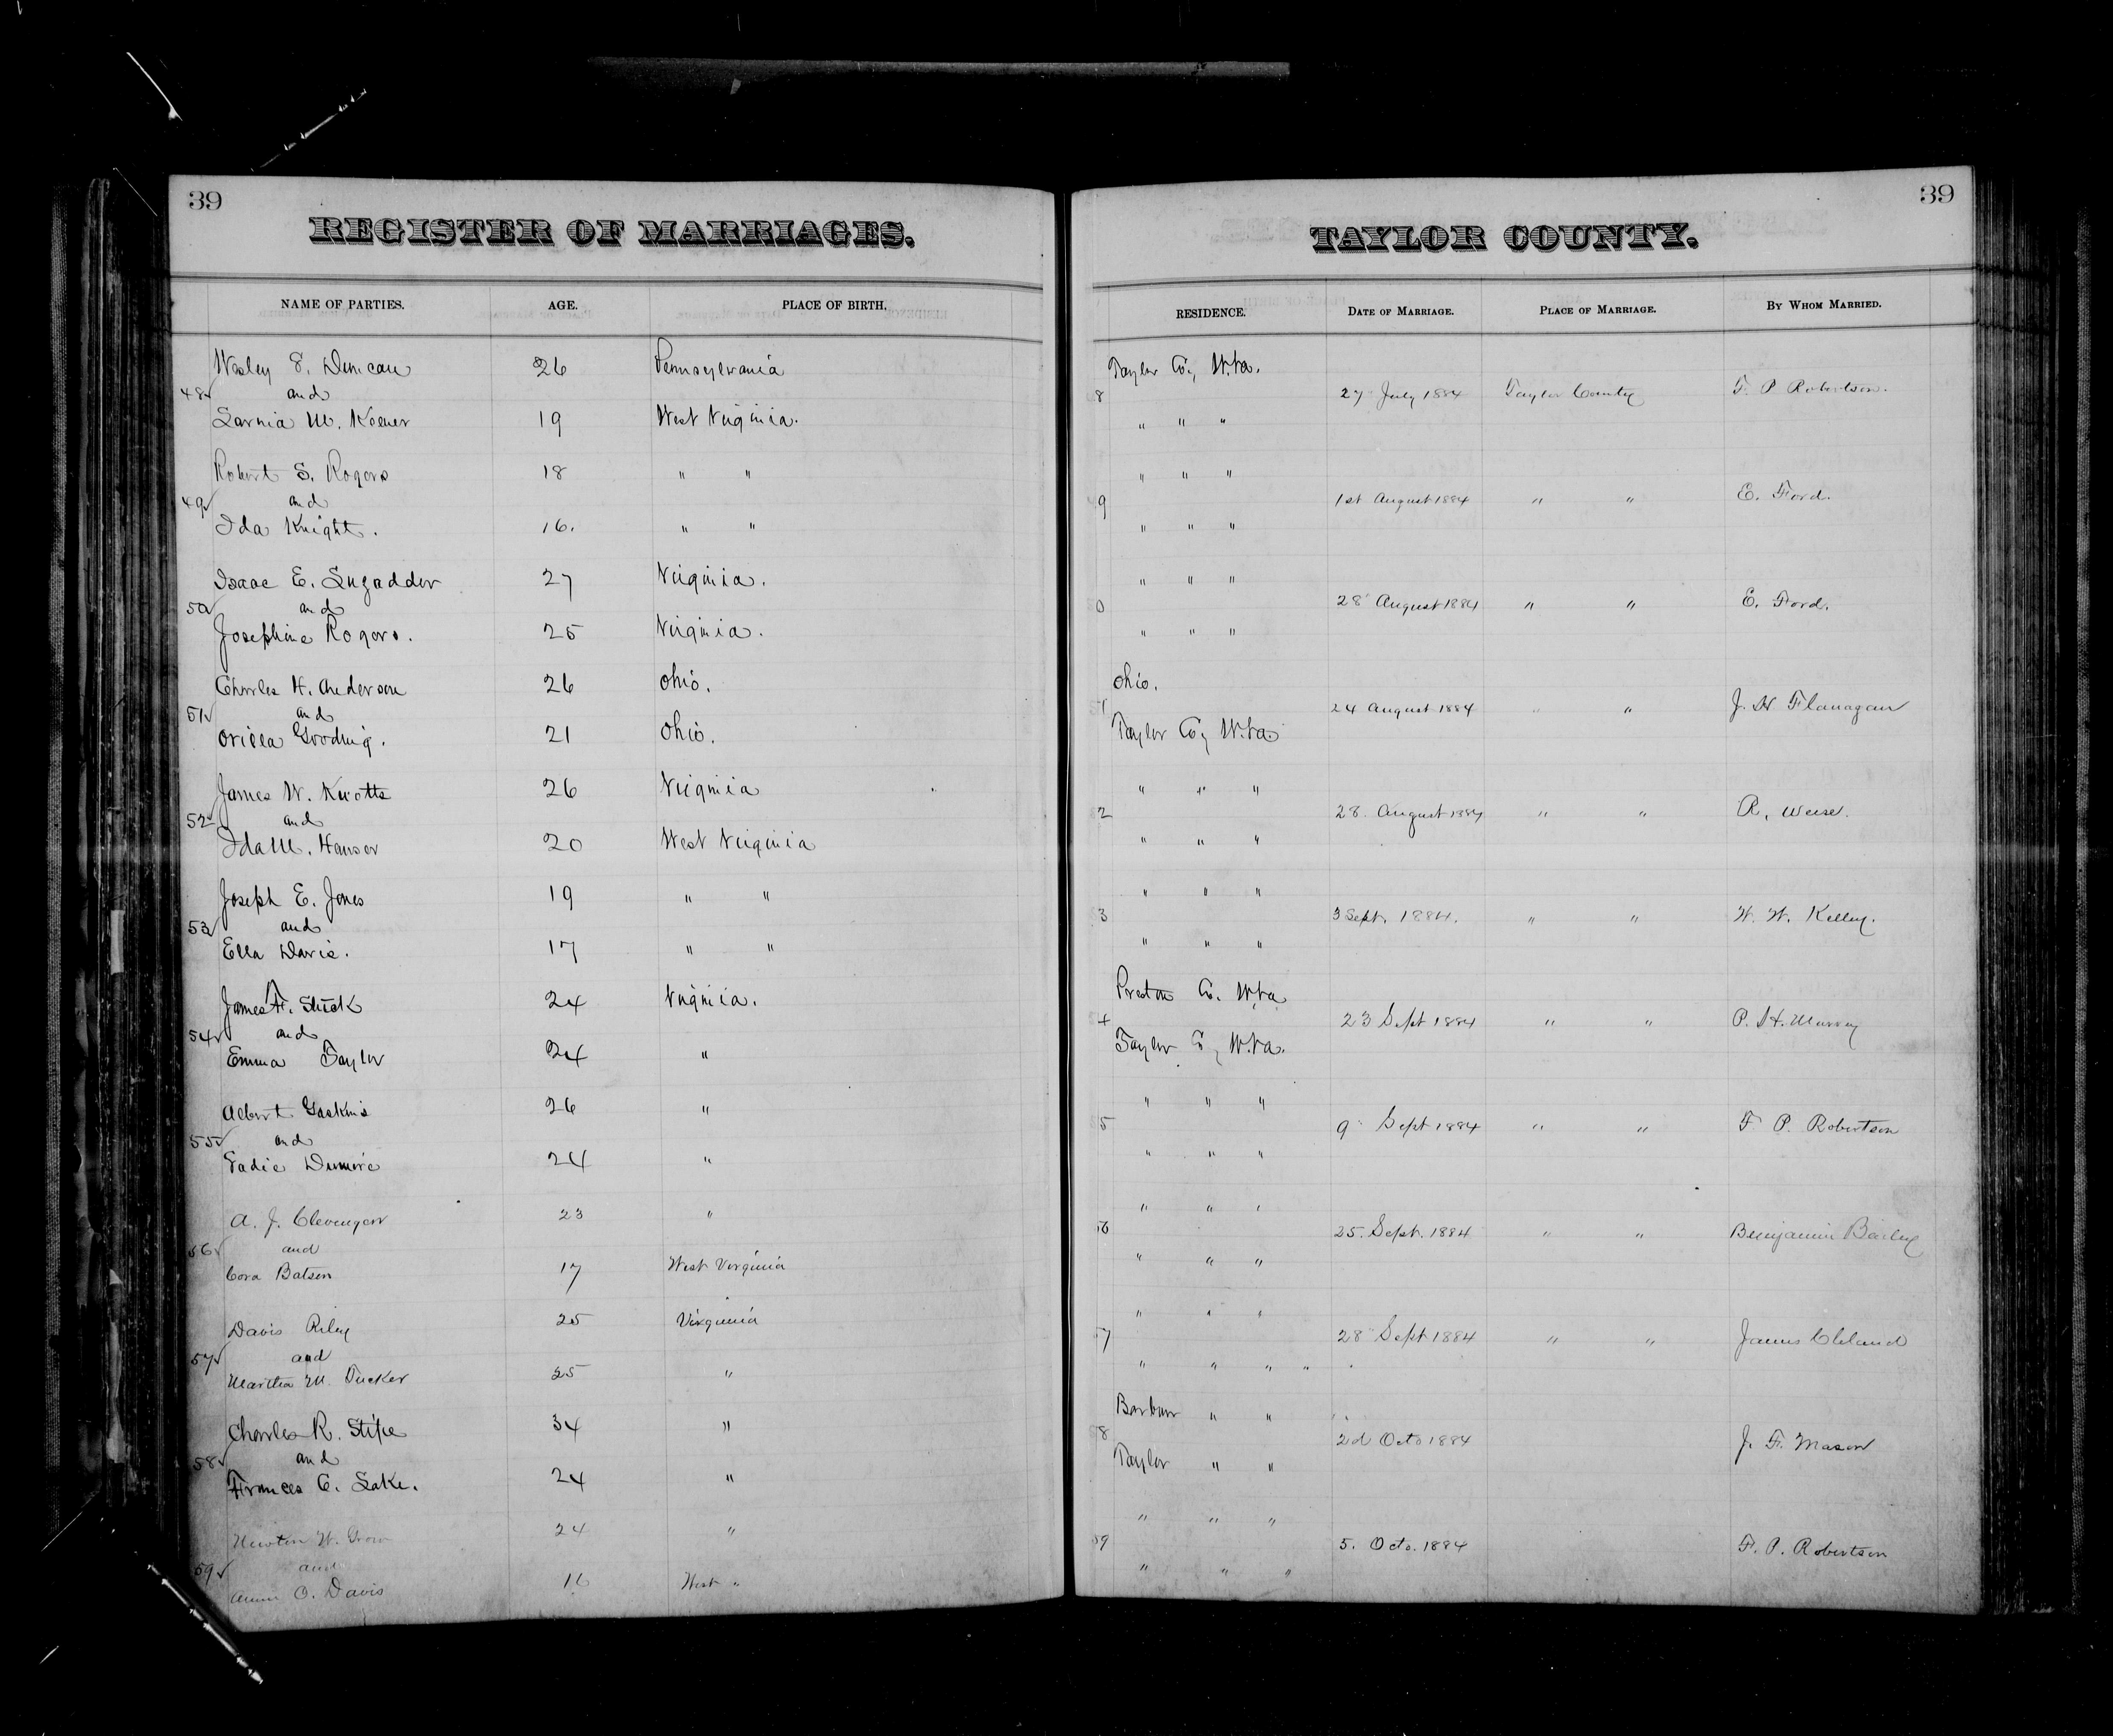 39
REGISTER OF MARRIAGES.
NAME OF PARTIES. AGE. PLACE OF BIRTH.
Wesley S. Duncan 26 Pennsylvania
48 and
M. 19 West Virginia.
Robert S. Rogers 18 " "
49 and
Ida Knight. 16. " "
Isaac E. Luzadder 27 Virginia.
50 and
Josephine Rogers. 25 Virginia.
Charles H. Anderson 26 Ohio.
51 and
Gooding. 21 Ohio.
James W. Knotts 26 Virginia
52 and
Ida M. 20 West Virginia
Joseph E. Jones 19 " "
53 and
Ella Davis. 17 " "
James F. 24 Virginia.
54 and
Emma Taylor 24 "
Albert Gaskins 26 "
55 and
24 "
A. J. Clevenger 23 "
56 and
Cora Batson 17 West Virginia
Davis Riley 25 Virginia
57 and
Martha M. Tucker 25 "
Charles R. Stipe 34 "
58 and
Frances C. Lake. 24 "
Newton W. Grow 24 "
59 and
O. Davis 16 West "
39
TAYLOR COUNTY.
RESIDENCE. DATE OF MARRIAGE. PLACE OF MARRIAGE. BY WHOM MARRIED.
Taylor Co, W.Va.
8 27 July 1884 Taylor County F. P. Robertson.
" " "
" " "
9 1st August 1884 " " E. Ford.
" " "
" " "
0 28 August 1884 " " E. Ford.
" " "
Ohio.
1 24 August 1884 " " J. W Flanagan
Taylor Co, W.Va
" " "
2 28 August 1884 " " R, Weese.
" " "
" " "
3 3 Sept. 1884. " " W. W. Kelley.
" " "
Preston Co. W.Va
4 23 Sept 1884 " " P. H. Murray
Taylor Co, W.Va.
" " "
5 9 Sept 1884 " " F. P. Robertson
" " "
" " "
6 25. Sept. 1884 " " Benjamin Bailey
" " "
" " "
7 28 Sept 1884 " " James Cleland
" " " "
Barbour " "
8 2d Octo 1884 J. F. Mason
Taylor " "
" " "
59 5. Octo. 1884 F. P. Robertson
" " "